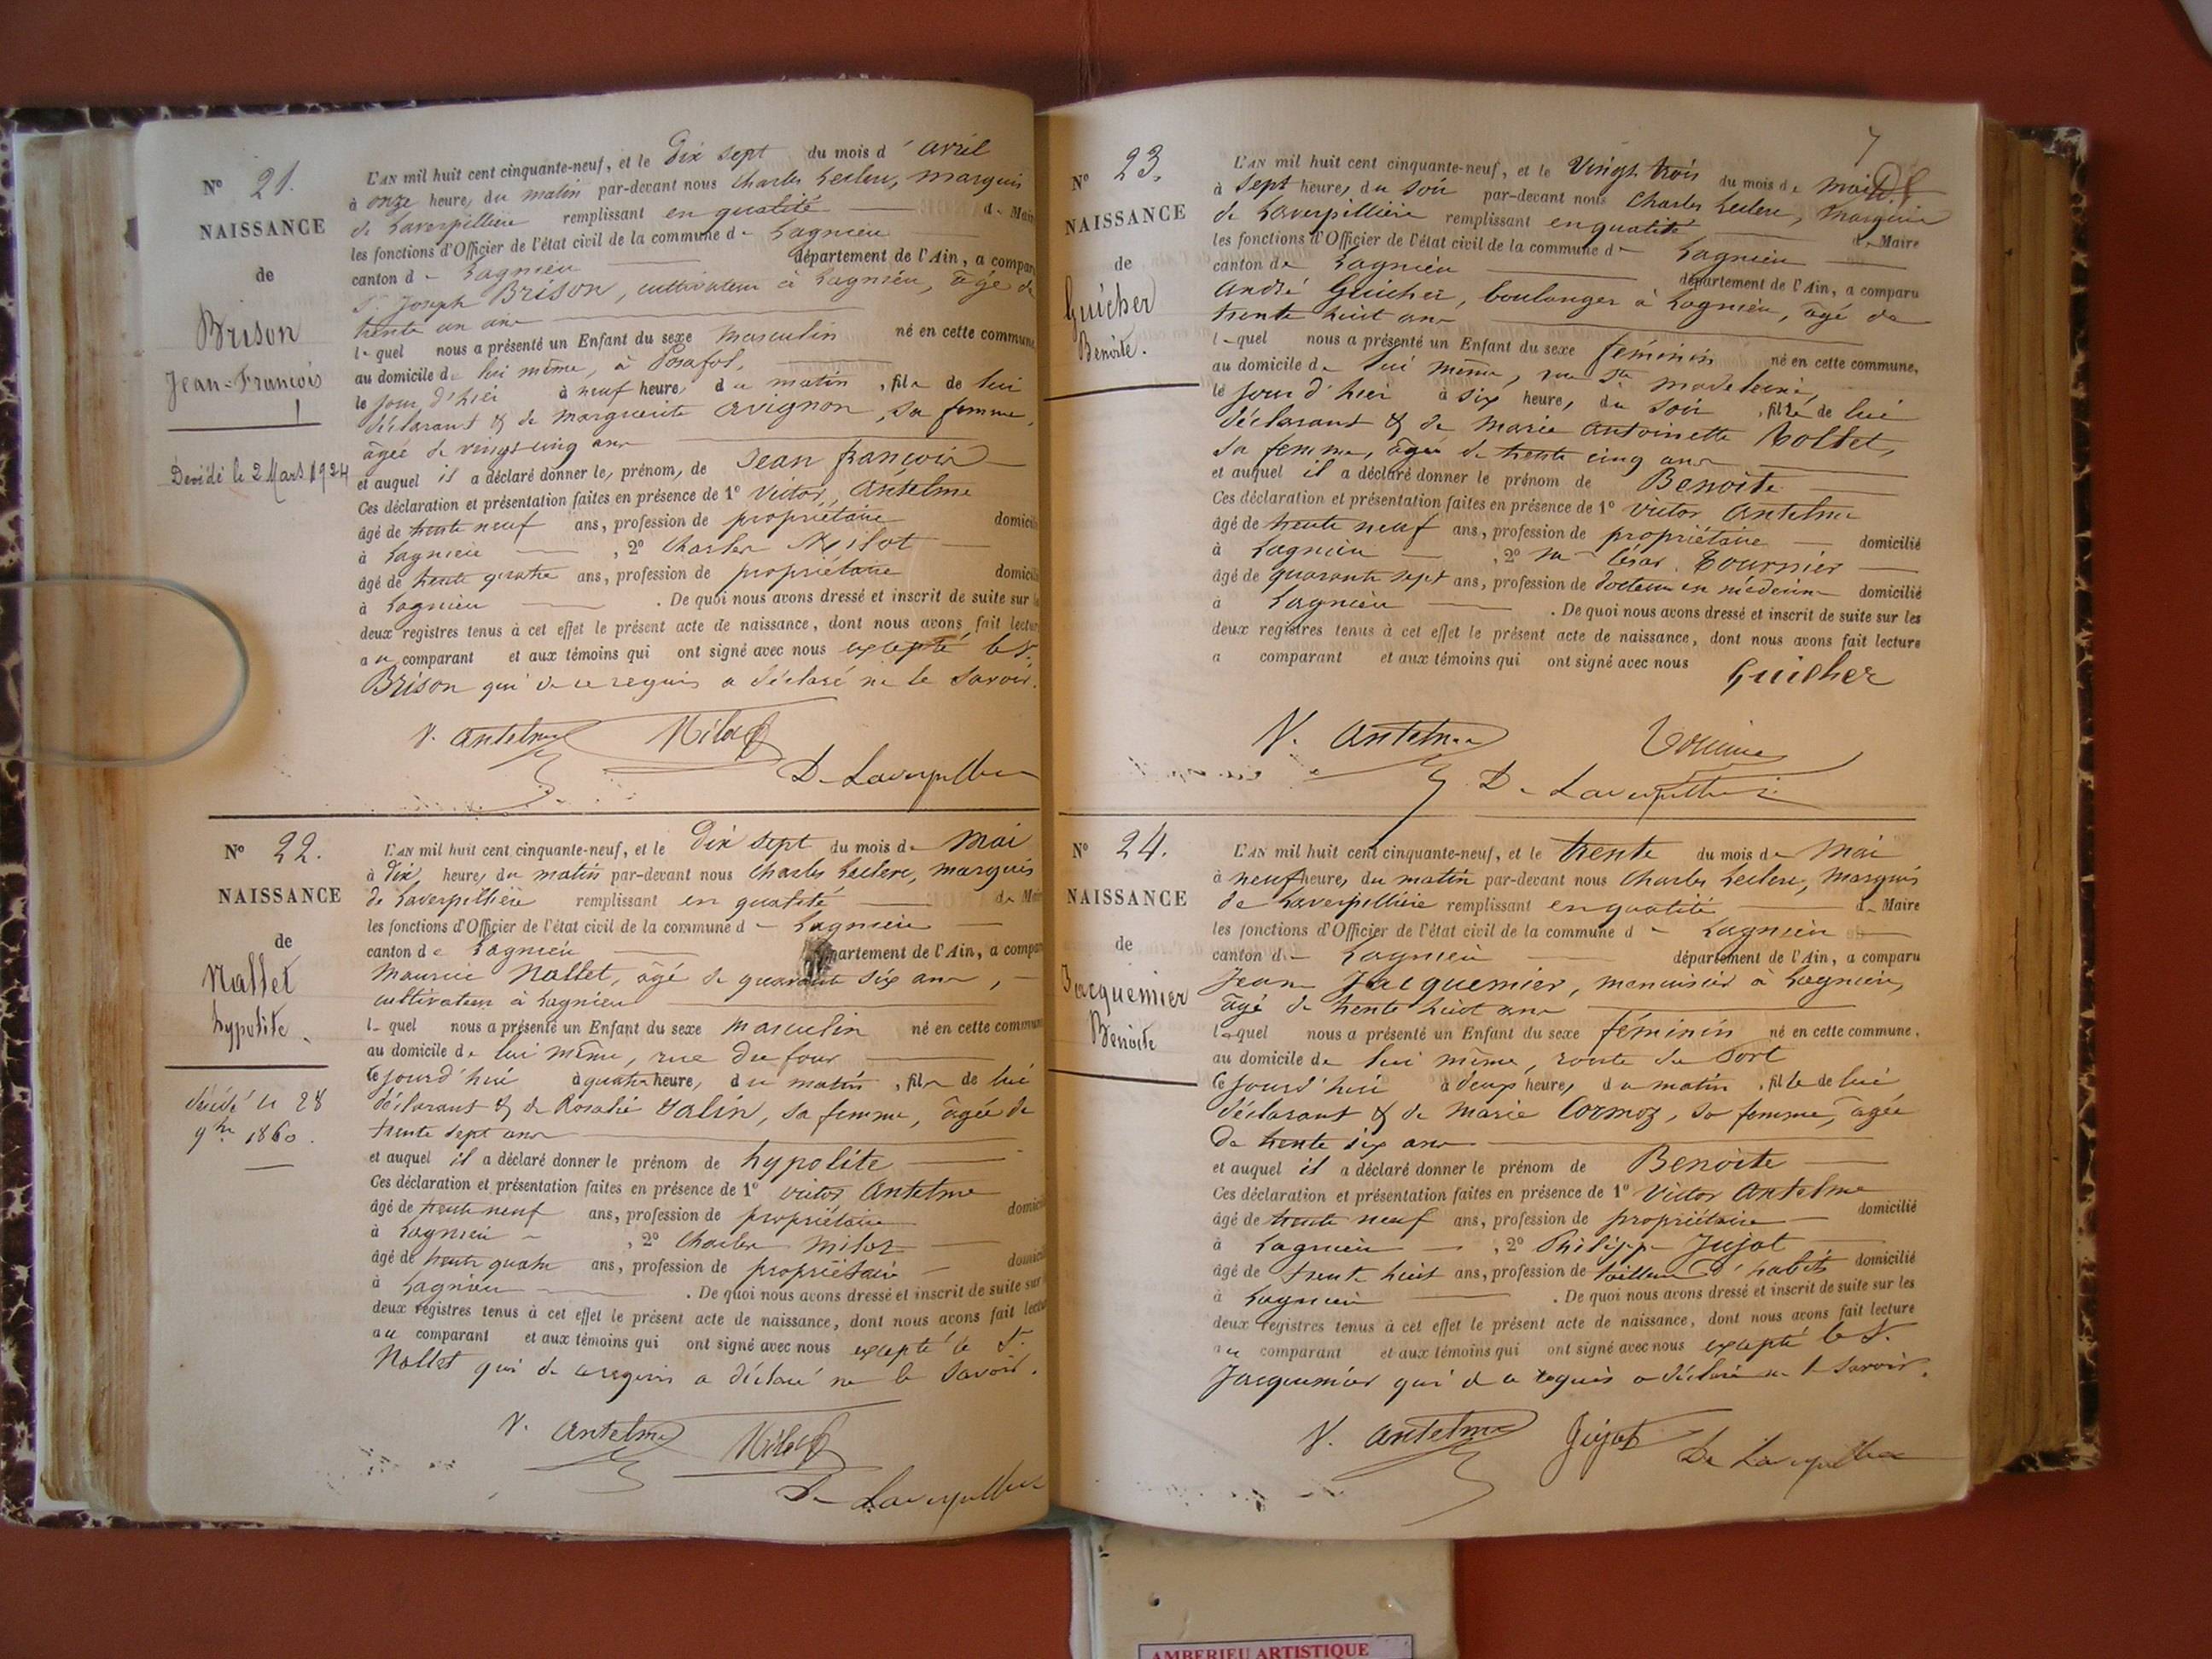 N° 21.
NAISSANCE
de
Brison
Jean-François
1
Décédé le 2 Mars 1934
L'AN mil huit cent cinquante-neuf, et le Dix sept du mois d' avril
à onze heures du matin par-devant nous Charles Leclerc, marquis
de Laverpillière remplissant en qualité de Mair
les fonctions d'Officier de l'état civil de la commune de Lagnieu
canton de Lagnieu département de l'Ain, a compar
Sr Joseph Brison, cultivateur à Lagnieu, âgé de
trente un ans
lequel nous a présenté un Enfant du sexe masculin né en cette commune,
au domicile de lui même, à Posafol,
le jour d'hier à neuf heures du matin, fils de lui
déclarant & de marguerite avignon, sa femme,
âgée de vingt-cinq ans
et auquel il a déclaré donner les prénoms de Jean françois
Ces déclaration et présentation faites en présence de 1° Victor, Antelme
âgé de trente neuf ans, profession de propriétaire domicili
à Lagnieu, 2° Charles Milot
âgé de trente quatre ans, profession de propriétaire domicili
à Lagnieu. De quoi nous avons dressé et inscrit de suite sur
deux registres tenus à cet effet le présent acte de naissance, dont nous avons fait lectur
au comparant et aux témoins qui ont signé avec nous excepté le Sr
Brison qui de ce requis a déclaré ne le savoir.
V. Antelme Milot
De Laverpillière
N° 22.
NAISSANCE
de
Nallet
hypolite.
décédé le 28
9bre 1860.
L'AN mil huit cent cinquante-neuf, et le Dix sept du mois de Mai
à dix heures du matin par-devant nous Charles Leclerc, marquis
de Laverpillière remplissant en qualité de Mair
les fonctions d'Officier de l'état civil de la commune de Lagnieu
canton de Lagnieu département de l'Ain, a compar
Maurice Nallet, âgé de quarante six ans,
cultivateur à Lagnieu
lequel nous a présenté un Enfant du sexe masculin né en cette commun
au domicile de lui même, rue du four
ce jourd'hui à quatre heures du matin, fils de lui
déclarant & de Rosalie Jalin, sa femme, âgée de
trente sept ans
et auquel il a déclaré donner le prénom de hypolite
Ces déclaration et présentation faites en présence de 1° victor Antelme
âgé de trente neuf ans, profession de propriétaire domici
à Lagnieu, 2° Charles Milot
âgé de trente quatre ans, profession de propriétaire domici
à Lagnieu. De quoi nous avons dressé et inscrit de suite sur
deux registres tenus à cet effet le présent acte de naissance, dont nous avons fait lectu
au comparant et aux témoins qui ont signé avec nous excepté le Sr
Nallet qui de ce requis a déclaré ne le savoir.
V. Antelme Milot
De Laverpillière
7
N° 23.
NAISSANCE
de
Guicher
Benoite.
L'AN mil huit cent cinquante-neuf, et le Vingt trois du mois de mai
à sept heures du soir par-devant nous Charles Leclerc, Marquis
de Laverpillière remplissant en qualité de Maire
les fonctions d'Officier de l'état civil de la commune de Lagnieu
canton de Lagnieu département de l'Ain, a comparu
André Guicher, boulanger à Lagnieu, âgé de
trente huit ans
lequel nous a présenté un Enfant du sexe féminin né en cette commune,
au domicile de lui même, rue Ste madeleine,
le jour d'hier à six heures du soir, fille de lui
déclarant & de Marie Antoinette Collet,
sa femme, âgée de trente cinq ans
et auquel il a déclaré donner le prénom de Benoite
Ces déclaration et présentation faites en présence de 1° Victor Antelme
âgé de trente neuf ans, profession de propriétaire domicilié
à Lagnieu, 2° Mr César Tournier
âgé de quarante sept ans, profession de docteur en médecine domicilié
à Lagnieu. De quoi nous avons dressé et inscrit de suite sur les
deux registres tenus à cet effet le présent acte de naissance, dont nous avons fait lecture
a comparant et aux témoins qui ont signé avec nous
Guicher
V. Antelme Tournier
De Laverpillière
N° 24.
NAISSANCE
de
Jacquemier
Benoite
L'AN mil huit cent cinquante-neuf, et le trente du mois de Mai
à neuf heures du matin par-devant nous Charles Leclerc, Marquis
de Laverpillière remplissant en qualité de Maire
les fonctions d'Officier de l'état civil de la commune de Lagnieu
canton de Lagnieu département de l'Ain, a comparu
Jean Jacquemier, menuisier à Lagnieu,
âgé de trente huit ans
lequel nous a présenté un Enfant du sexe féminin né en cette commune,
au domicile de lui même, route du Port
ce jourd'hui à deux heures du matin, fille de lui
déclarant & de Marie Cormoz, sa femme, âgée
de trente six ans
et auquel il a déclaré donner le prénom de Benoite
Ces déclaration et présentation faites en présence de 1° Victor Antelme
âgé de trente neuf ans, profession de propriétaire domicilié
à Lagnieu, 2° Philippe Jujat
âgé de trente huit ans, profession de tailleur d'habits domicilié
à Lagnieu. De quoi nous avons dressé et inscrit de suite sur les
deux registres tenus à cet effet le présent acte de naissance, dont nous avons fait lecture
au comparant et aux témoins qui ont signé avec nous excepté le Sr
Jacquemier qui de ce requis a déclaré ne le savoir.
V. Antelme Jujat De Laverpillière
AMBERIEU ARTISTIQUE